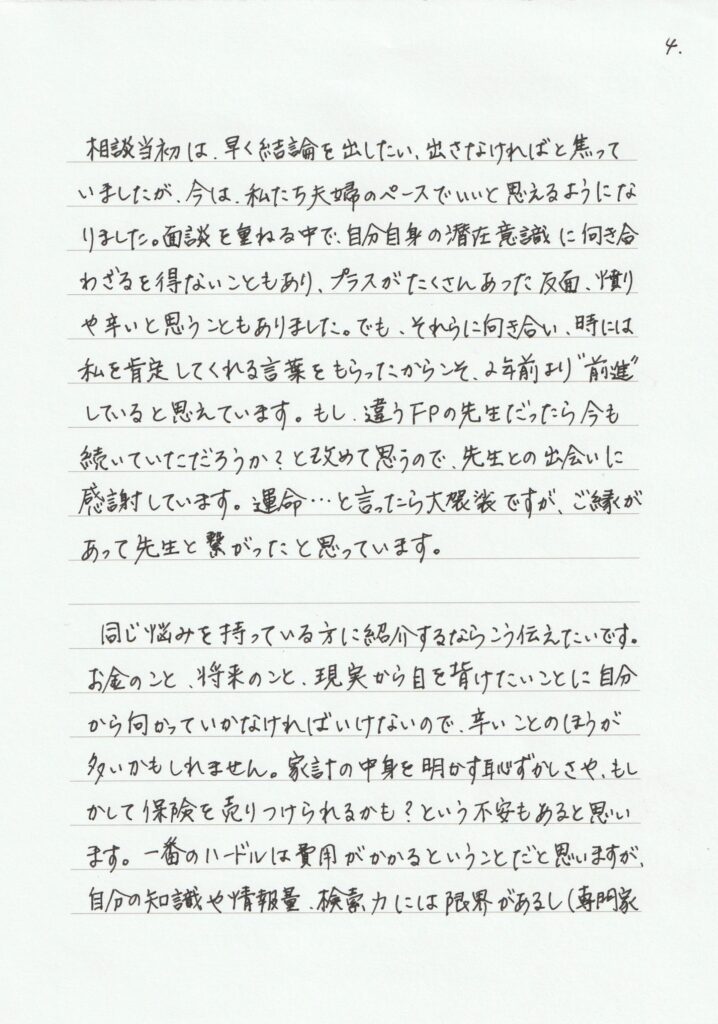 4.
相談当初は、早く結論を出したい、出さなければと焦って
いましたが、今は、私たち夫婦のペースでいいと思えるようにな
りました。面談を重ねる中で、自分自身の潜在意識に向き合
わざるを得ないこともあり、プラスがたくさんあった反面、憤り
や辛いと思うこともありました。でも、それらに向き合い、時には
私を肯定してくれる言葉をもらったからこそ、2年前より"前進"
していると思えています。もし、違うFPの先生だったら今も
続いていただろうか？と改めて思うので、先生との出会いに
感謝しています。運命…と言ったら大袈裟ですが、ご縁が
あって先生と繋がったと思っています。
同じ悩みを持っている方に紹介するならこう伝えたいです。
お金のこと、将来のこと、現実から目を背けたいことに自分
から向かっていかなければいけないので、辛いことのほうが
多いかもしれません。家計の中身を明かす恥ずかしさや、もし
かして保険を売りつけられるかも？という不安もあると思い
ます。一番のハードルは費用がかかるということだと思いますが、
自分の知識や情報量、検索力には限界があるし(専門家